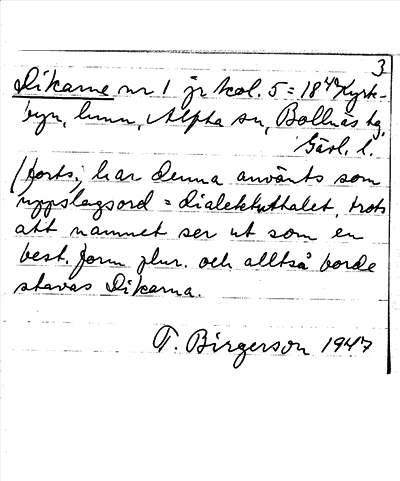 3
Dikarne nr 1 jr kol. 5 = 18 40 Kyrk-
byn, hmn, Alpha sn, Bollnäs tg,
Gävl. l.
(forts.) har denna använts som
uppslagsord = dialektuttalet, trots
att namnet ser ut som en
best. form plur. och alltså borde
stavas Dikarna.
T. Birgerson 1947